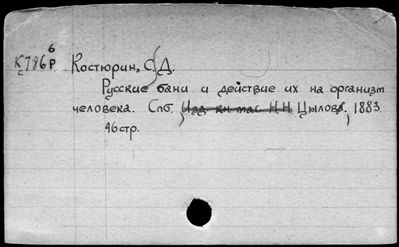 6
К786Р
с
Костюрин, С.Д.
Русские бани и действие их на организм
человека. Спб. Изд. кн. маг. Н.Н. Цылов, 1883.
46 стр.